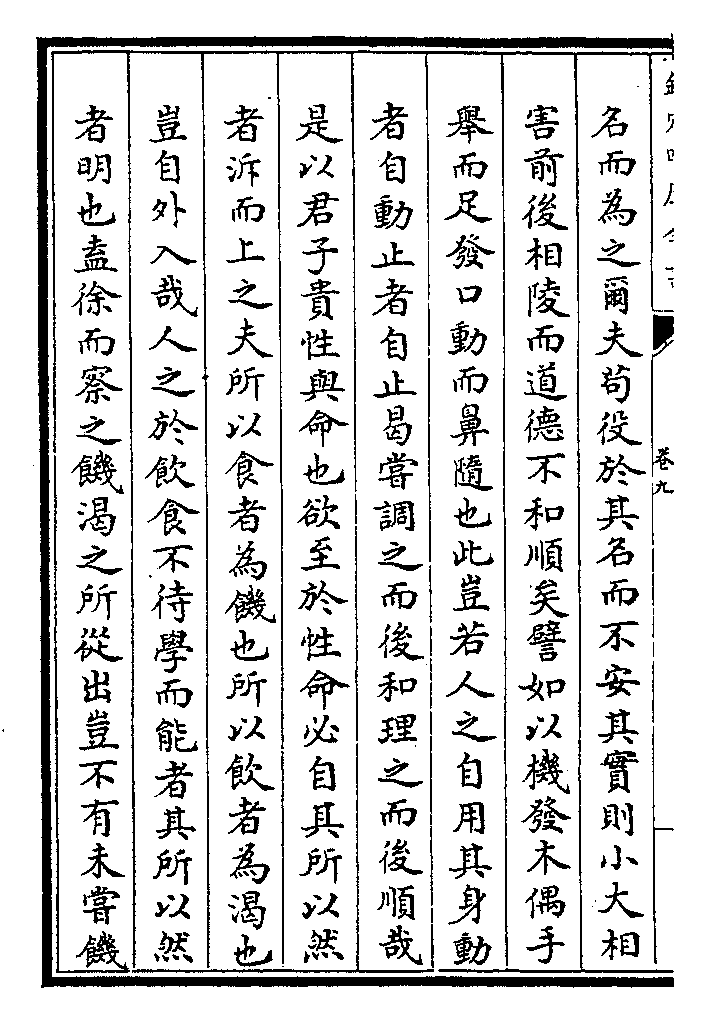 卷九
名而為之爾夫苟役於其名而不安其實則小大相
害前後相陵而道德不和順矣譬如以機發木偶手
舉而足發口動而鼻隨也此豈若人之自用其身動
者自動止者自止曷嘗調之而後和理之而後順哉
是以君子貴性與命也欲至於性命必自其所以然
者泝而上之夫所以食者為饑也所以飲者為渴也
豈自外入哉人之於飲食不待學而能者其所以然
者明也盍徐而察之饑渴之所從出豈不有未嘗饑